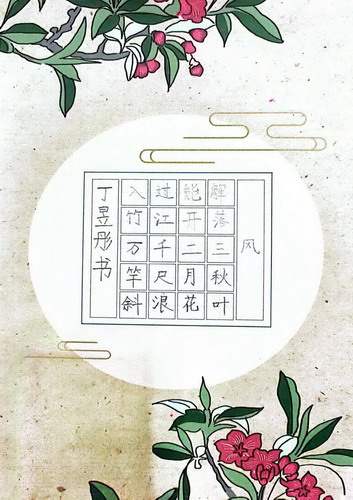 风
解落三秋叶
能开二月花
过江千尺浪
入竹万竿斜
丁昱彤书